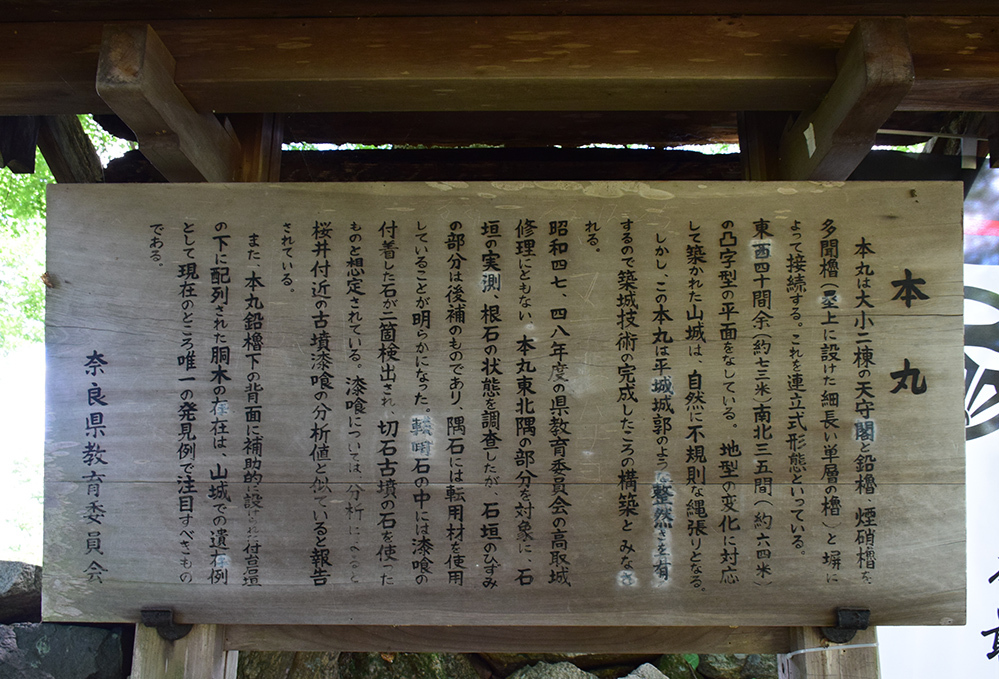 本丸
本丸は大小二棟の天守閣と鉛櫓、煙硝櫓を、
多聞櫓(塁上に設けた細長い単層の櫓)と塀に
よって接続する。これを連立式形態といっている。
東西四十間余(約七三米)南北三五間(約六四米)
の凸字型の平面をなしている。地型の変化に対応
して築かれた山城は、自然に不規則な縄張りとなる。
しかし、この本丸は平城城郭のような整然さを有
するので築城技術の完成したころの構築とみなさ
れる。
昭和四七、四八年度の県教育委員会の高取城
修理にともない、本丸東北隅の部分を対象に、石
垣の実測、根石の状態を調査したが、石垣のひずみ
の部分は後補のものであり、隅石には転用材を使用
していることが明らかになった。転用石の中には漆喰の
付着した石が二箇検出され、切石古墳の石を使った
ものと想定されている。漆喰については、分析によると
桜井付近の古墳漆喰の分析値と似ていると報告
されている。
また、本丸鉛櫓下の背面に補助的に設けた付台垣
の下に配列された胴木の存在は、山城での遺存例
として現在のところ唯一の発見例で注目すべきもの
である。
奈良県教育委員会